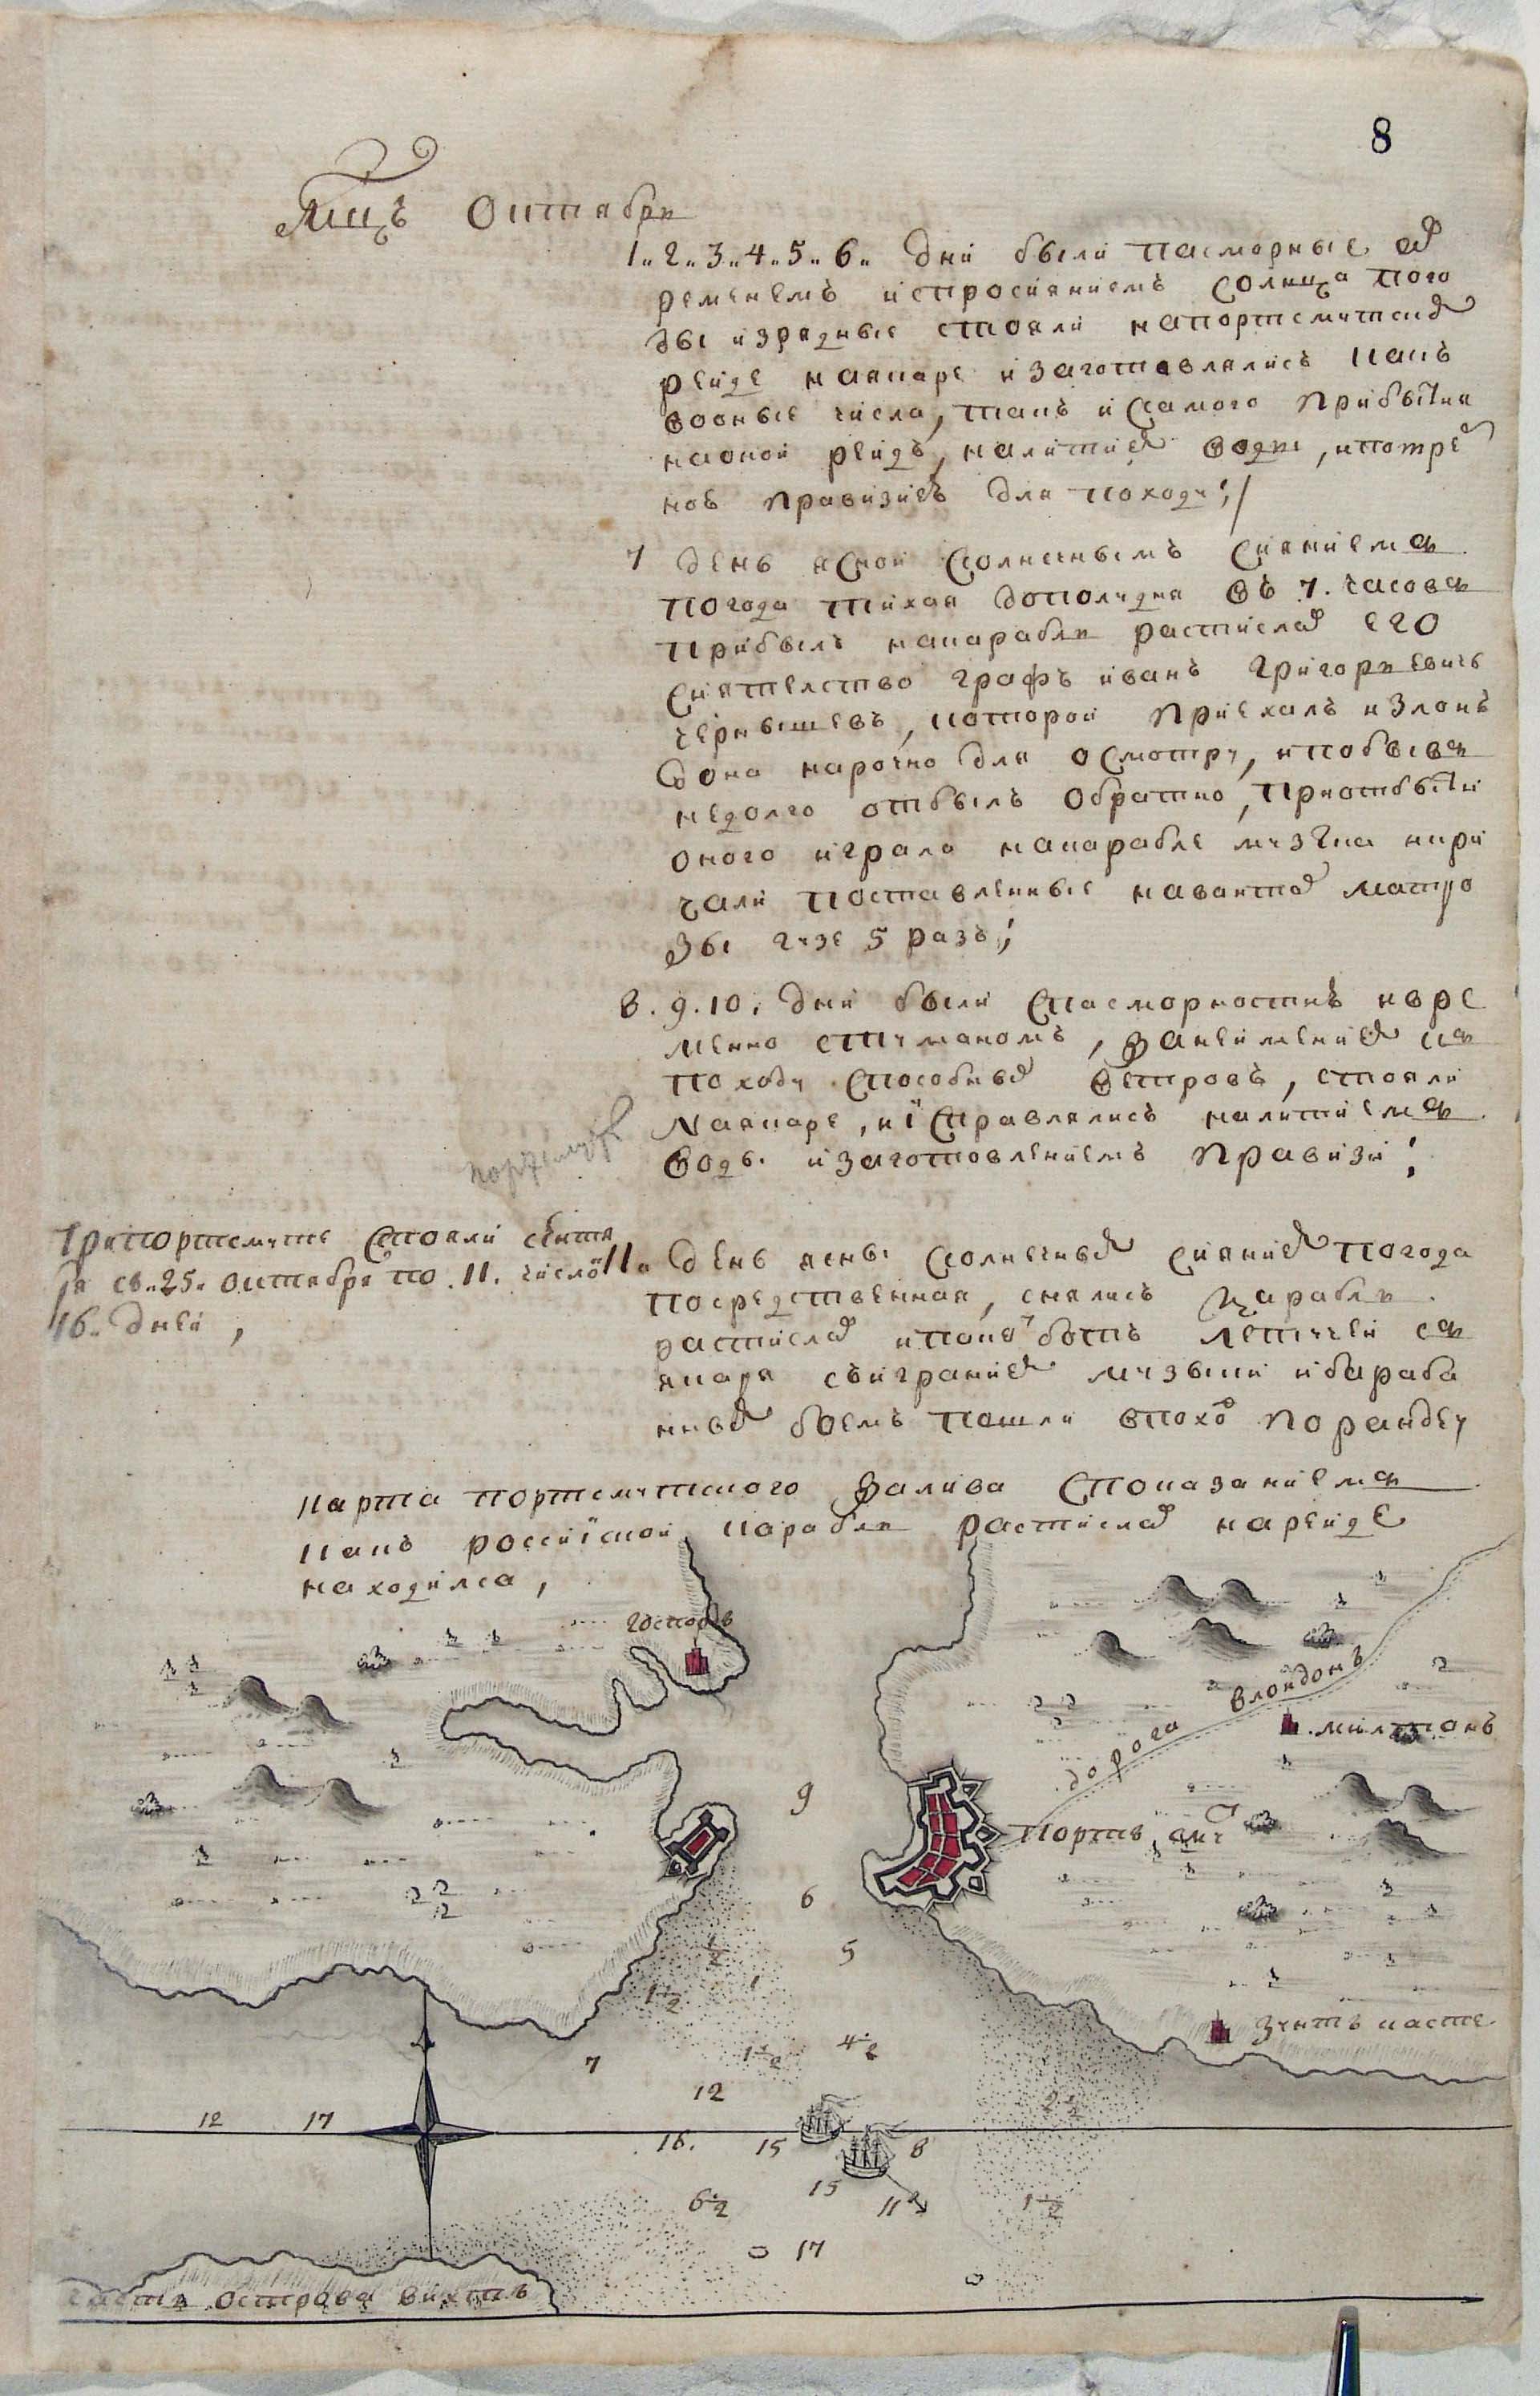 8
Мцъ Октября
1. 2. 3. 4. 5. 6. Дни были пасморные св
ременемъ испросияниемъ солнца пого
ды изрядные стояли напортсмутском
рейде наякаре изаготовлялись какъ
вооные числа, такъ исамого прибытия
наоной рейдъ, налитием воды, ипотре
нов правизиев для походу;
7 день ясной ссолнечнымъ сияниемъ
погода тихая дополудня въ 7. часовъ
прибылъ накарабль растислав его
сиятелство графъ иванъ григорьевичь
чернышевъ, которой приехалъ излон
дона нарочно для осмотру, ипобывъ
недолго отбылъ обратно, приотбытии
оного играла накарабле музыка икри
чали поставленные навантах матро
зы гузе 5 разъ;
8. 9. 10. дни были спасморностию ивре
менно стуманомъ, занеимением къ
походу способных ветровъ, стояли
наякаре, иїсправлялись налитиемъ
воды изаготовлениемъ правизи;
портсмут
Припортсмуте стояли сентя
бря съ 25. октября по 11. число
16. дней,
11. день ясны ссолнечным сиянием погода
посредственная, снялись карабль
растислав ипакетботъ летучей съ
якаря съигранием музыки ибараба
нным боемъ пошли впоход порандеу
карта портсмутского залива споказаниемъ
какъ россиїской карабль растислав нарейде
находился,
госпорть
дорога влондонъ
милтонъ
портъ смут
зунтъ касте
9
6
5
1/2
1
1 1/2
1 1/2
4 1/2
7
12
12
17
16.
15
8
2 1/2
15
11
6 1/2
1 1/2
17
часть острова вихтъ